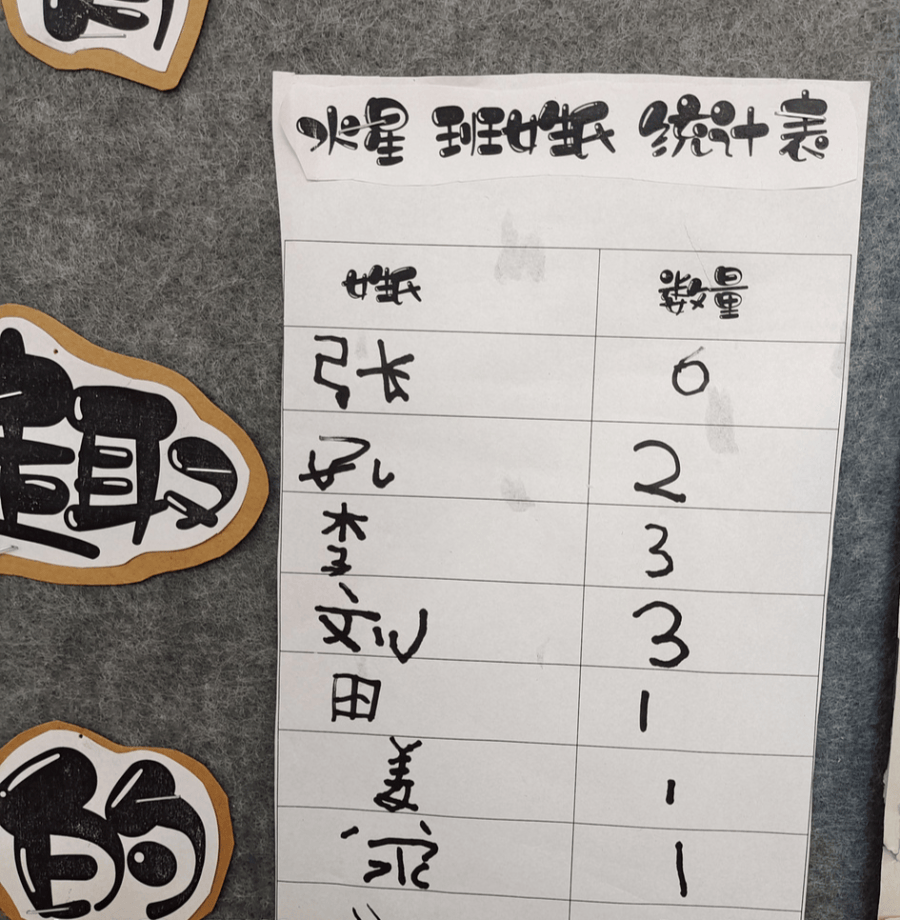 火星 班姓氏 统计表
姓氏 数量
张 0
2
李 3
刘 3
田 1
姜 1
1
趣
的